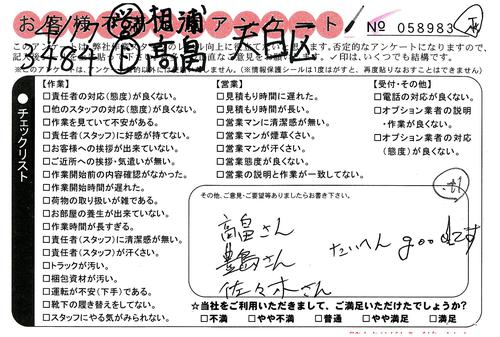 お客様 アンケート № 058983
4/17 相浦
3484 高畠 天白区
【作業】
□責任者(態度)が良くない。
□他のスタッフの対応(態度)が良くない。
□作業を見ていて不安がある。
□責任者(スタッフ)に好感が持てない。
□お客様への挨拶が出来ていない。
□ご近所への挨拶・気遣いが無い。
□作業開始前の内容確認がなかった。
□作業開始時間が遅れた。
□荷物の取り扱いが雑である。
□お部屋の養生が出来ていない。
□作業時間が長すぎる。
□責任者(スタッフ)に清潔感が無い。
□責任者(スタッフ)が汗くさい。
□トラックが汚い。
□梱包資材が汚い。
□運転が不安(下手)である。
□靴下の履き替えをしてない。
□スタッフにやる気がみられない。
【営業】
□見積もり時間に遅れた。
□見積もり時間が長い。
□営業マンに清潔感が無い。
□営業マンが煙草くさい。
□営業マンが汗くさい。
□営業態度が良くない。
□営業の説明と作業が一致してない。
【受付・その他】
□電話の対応が良くない。
□オプション業者の説明
・作業が良くない。
□オプション業者の対応
(態度)が良くない。
チェックリスト
その他、ご意見・ご要望等ありましたらお書き下さい。
高畠さん
豊島さん たいへん goodです
佐々木さん
☆当社をご利用いただきまして、ご満足いただけたでしょうか?
□不満 □やや不満 □普通 □やや満足 □満足